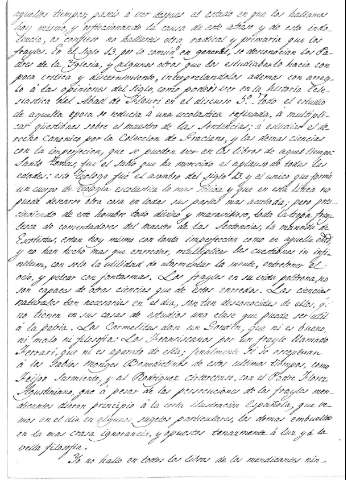 aquellos tiempos, pasmó a ver despues el estado a que los hallamos
hoy mismo, y reflexionando la causa de este atraso y de esta indo-
lencia, se confiesa no hallarse otra positiva y primaria que los
frayles. En el siglo 13 por lo comun en general, se desconocian los Pa-
dres de la Yglesia, y algunos otros que los estudiaban lo hacia con
poca critica y discernimiento, interpretandolos ademas con arreg-
lo à las opiniones del siglo, como puedes ver en la historia Ecle-
siastica del Abad de Fleuri en el discurso 5º. Todo el estudio
de aquella epoca se reducia à una escolastica refinada, à multipli-
car questiones sobre el maestro de las Sentencias; à estudiar el de-
recho Canonico por la Coleccion de Graciano, y las demas ciencias
con la imperfeccion, que se pueden ver en los libros de aquel tiempo.
Santo Tomas, fue el sabio que ha merecido el aplauso de todas las
edades: este Teologo fue el asombro del siglo 13 y el unico que formó
un cuerpo de Teología escolastica la mas solida y que en esta linea no
puede darse otra cosa en todas sus partes mas acabada; pero pres-
cindiendo de este hombre todo divino y maravilloso, toda la otra fray-
lesca de comendadores del maestro de las Sentencias, la mania de
Escolistas, estan hoy mismo con tanta imperfeccion como en aquella edad
y no han hecho mas que enredar, multiplicar las cuestiones in infi-
nitum, con sola la utilidad de atormentar la mente, entretener el
ocio, y pelear con fantasmas. Los frayles en su vida poltrona, no
son capaces de otras ciencias que de estos enredos. Las ciencias
naturales tan necesarias en el dia, son tan desconocidas de ellos, q.
no tienen en sus casas de estudios una clase que pueda ser util
à la patria. Los Carmelitas dan un Goudin, que ni es bueno,
ni malo ni filosofia. Los Franciscanos por un frayle llamado
Ferrari, que ni es aparato de ella; finalmente si se exceptuan
à los sabios monges Bernardinos de estos ultimos tiempos, como
Feijoo, Sarmiento, y al Rodriguez cisterciense, con el Padre Florez
Agustiniano, que à pesar de las persecuciones de los frayles men-
dicantes dieron principio à la corta ilustracion Española, que ve-
mos en el dia en algunos sugetos particulares, los demas embueltos
en la mas crasa ignorancia, y opuestos tenazmente à la luz y à la
bella filosofia.
Yo no hallo en todos los libros de los mendicantes nin-